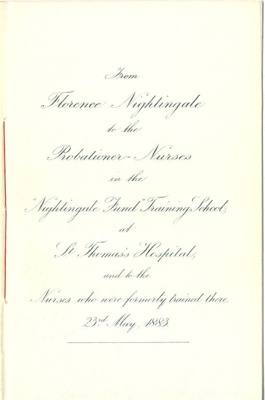 From
Florence Nightingale
to the
Probationer-Nurses
in the
"Nightingale Fund" Training School,
at
St. Thomas's Hospital,
and to the
Nurses who were formerly trained there.
23rd May, 1883.